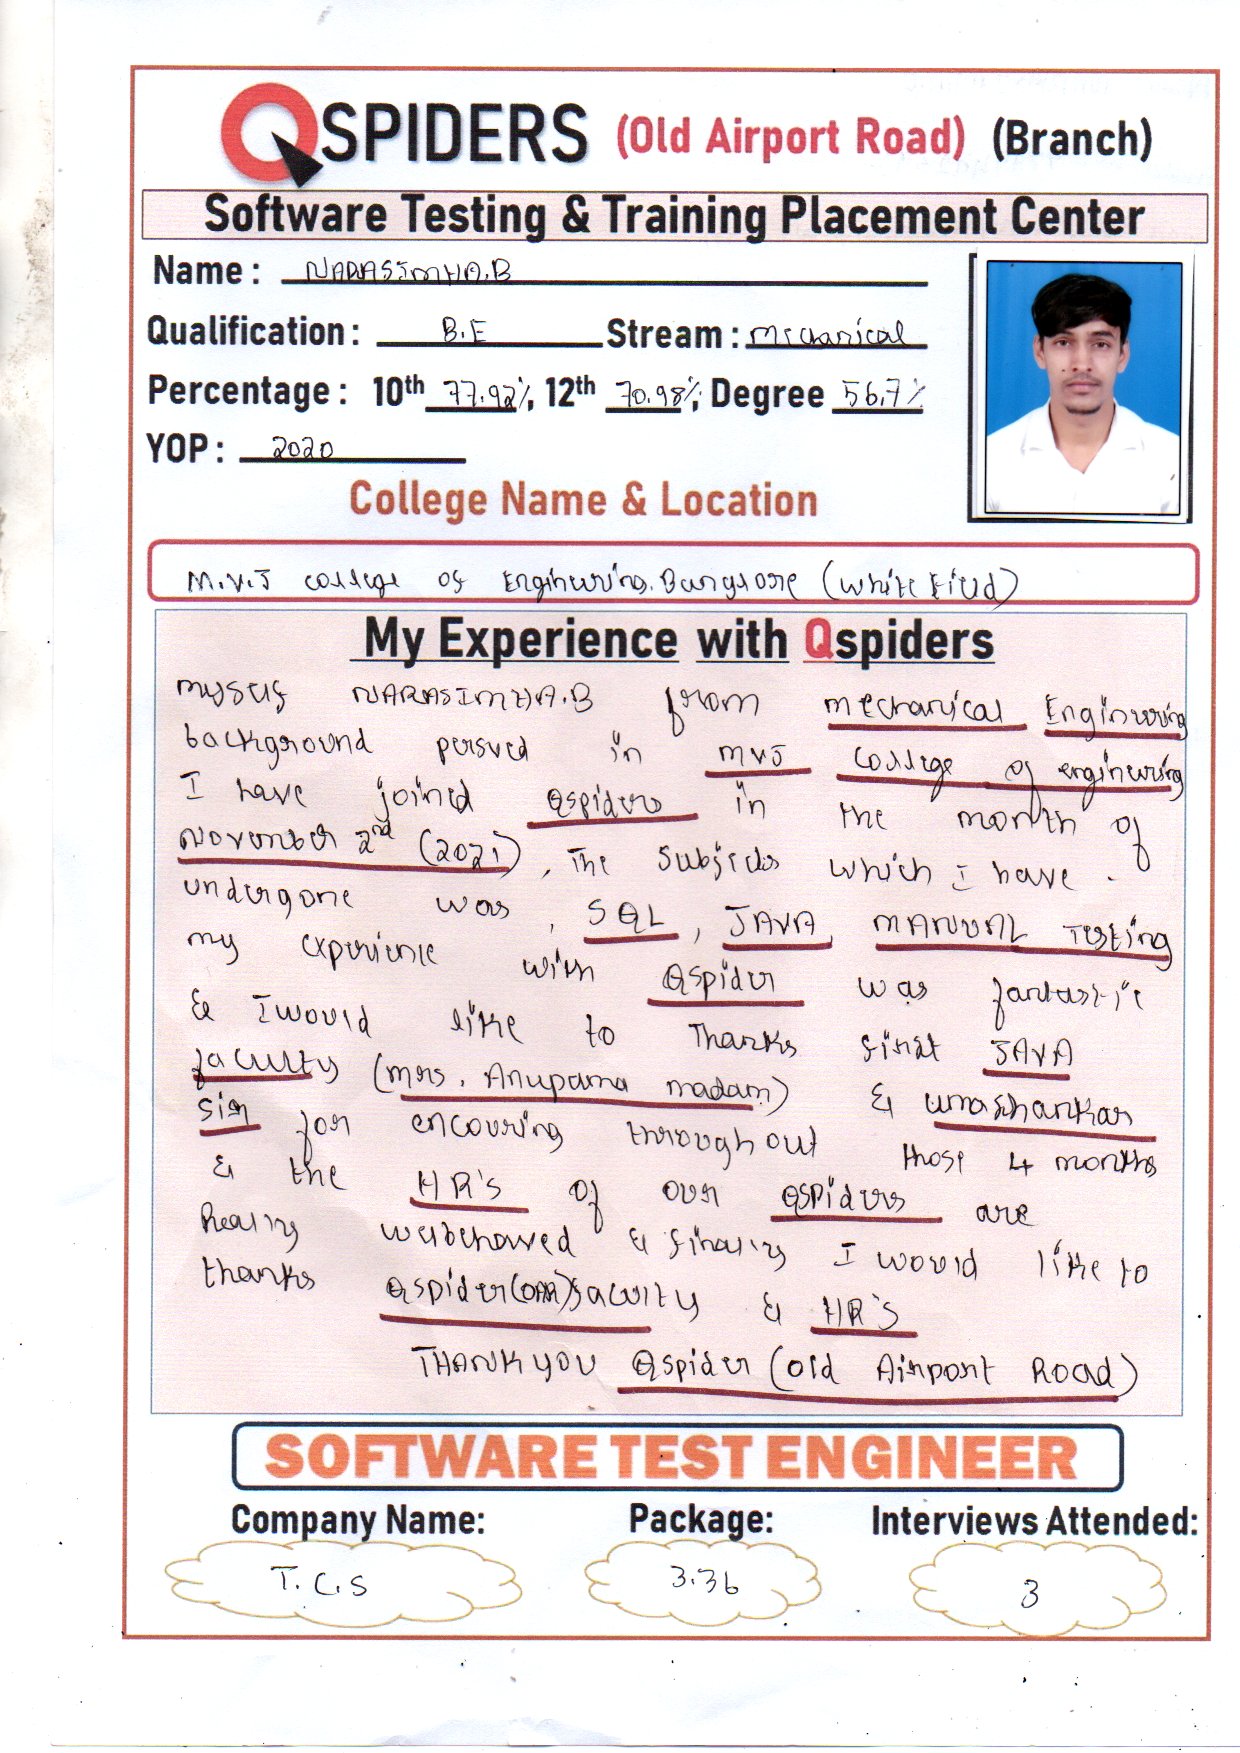 QSPIDERS (Old Airport Road) (Branch)
Software Testing & Training Placement Center
Name : NARASIMHA.B
Qualification : B.E Stream : Mechanical
Percentage : 10th 77.92%, 12th 70.98%, Degree 56.7%
YOP : 2020
College Name & Location
M.V.J college of Engineering. Banglore (White Field)
My Experience with Qspiders
myself NARASIMHA.B from mechanical Engineering
background persued in MVJ college of engineering
I have joined Qspiders in the month of
November 2nd (2021), The Subjects which I have
undergone was, SQL, JAVA, MANUAL Testing
my experience with Qspider was fantastic
& I would like to Thanks first JAVA
faculty (Mrs. Anupama madam) & umashankar
Sir for encouring throughout those 4 months
& the HR's of our Qspiders are
Really wellbehaved & finally I would like to
thanks Qspider(OAR)faculty & HR's
THANK YOU Qspider (Old Airport Road)
SOFTWARE TEST ENGINEER
Company Name: Package: Interviews Attended:
T.C.S 3.36 3